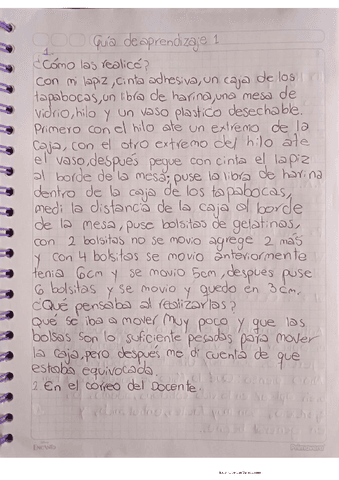 Guía de aprendizaje 1
1.
¿Cómo las realicé?
Con mi lapiz, cinta adhesiva, un caja de los
tapabocas, un libra de harina, una mesa de
vidrio, hilo y un vaso plastico desechable.
Primero con el hilo ate un extremo de la
caja, con el otro extremo del hilo ate
el vaso, después pegue con cinta el lapiz
al borde de la mesa; puse la libra de harina
dentro de la caja de los tapabocas,
medi la distancia de la caja al borde
de la mesa, puse bolsitas de gelatinas,
con 2 bolsitas no se movio agrege 2 mas
y con 4 bolsitas se movio anteriormente
tenia 6cm y se movio 5cm, después puse
6 bolsitas y se movio y quedo en 3cm.
¿Qué pensaba al realizarlas?
Que se iba a mover muy poco y que las
bolsas son lo suficiente pesadas para mover
la caja, pero después me di cuenta de que
estaba equivocada.
2. En el correo del Docente.